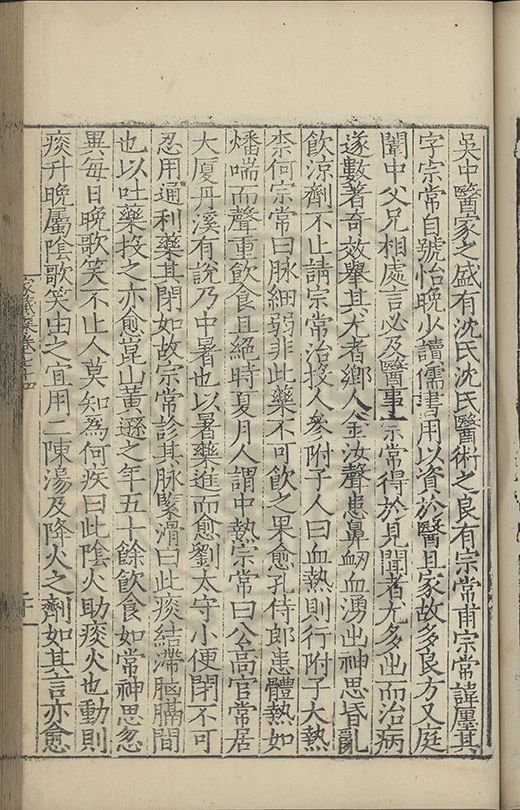 吳中醫家之盛有沈氏沈氏醫術之良有宗常甫宗常諱㕓其
字宗常自號怡晚少讀儒書用以資於醫且家故多良方又庭
闈中父兄相處言必及醫事宗常得於見聞者尤多出而治病
遂數著奇效舉其尤者鄉人金汝聲患鼻衂血湧出神思昏亂
飲涼劑不止請宗常治投人參附子人曰血熱則行附子大熱
柰何宗常曰脉細弱非此藥不可飲之果愈孔侍郎患體熱如
燔喘而聲重飲食且絕時夏月人謂中熱宗常曰公高官常居
大厦丹溪有說乃中暑也以暑藥進而愈劉太守小便閉不可
忍用通利藥其閉如故宗常診其脉緊滑曰此痰結滯脇膈間
也以吐藥投之亦愈崑山黃遜之年五十餘飲食如常神思忽
異每日晚歌笑不止人莫知為何疾曰此陰火助痰火也動則
痰升晚屬陰歌笑由之宜用二陳湯及降火之劑如其言亦愈
家藏集卷